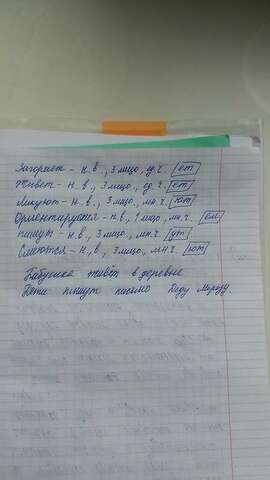 Загорает - н.в., 3 лицо, ед.ч. ет
Живет - н.в., 3 лицо, ед.ч. ет
Ликуют - н.в., 3 лицо, мн.ч. ют
Ориентируемся - н.в, 1 лицо, мн.ч. ем
пишут - н.в, 3 лицо, мн.ч. ут
Смеются - н.в, 3 лицо, мн.ч. ют
Бабушка живёт в деревне
Дети пишут письмо Деду Морозу.